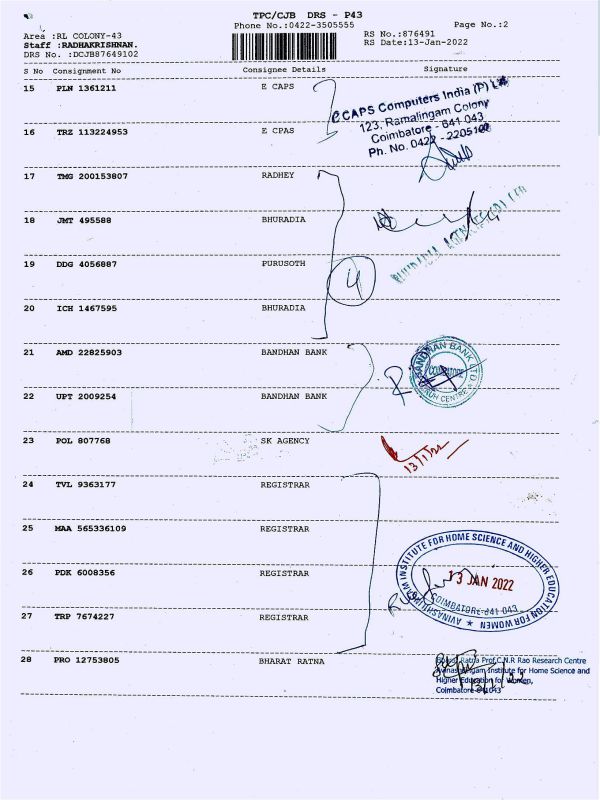 TPC/CJB DRS - P43
Phone No.:0422-3505555 Page No.:2
Area :RL COLONY-43 RS No.:876491
Staff :RADHAKRISHNAN. RS Date:13-Jan-2022
DRS No. :DCJB87649102
S No Consignment No Consignee Details Signature
15 PLN 1361211 E CAPS
eCAPS Computers India (P) Ltd
123, Ramalingam Colony
Coimbatore - 641 043
Ph. No. 0422 - 2205100
16 TRZ 113224953 E CPAS
17 TMG 200153807 RADHEY
18 JMT 495588 BHURADIA
BHURADIA AGENCIES (P) LTD
19 DDG 4056887 PURUSOTH
4
20 ICH 1467595 BHURADIA
21 AMD 22825903 BANDHAN BANK
BANDHAN BANK LTD.
COIMBATORE
22 UPT 2009254 BANDHAN BANK
23 POL 807768 SK AGENCY
13/1/22
24 TVL 9363177 REGISTRAR
25 MAA 565336109 REGISTRAR
AVINASHILINGAM INSTITUTE FOR HOME SCIENCE AND HIGHER EDUCATION FOR WOMEN ★
13 JAN 2022
COIMBATORE-641 043
26 PDK 6008356 REGISTRAR
27 TRP 7674227 REGISTRAR
28 PRO 12753805 BHARAT RATNA
Bharat Ratna Prof.C.N.R Rao Research Centre
Avinashilingam Institute for Home Science and
Higher Education for Women,
Coimbatore-641043